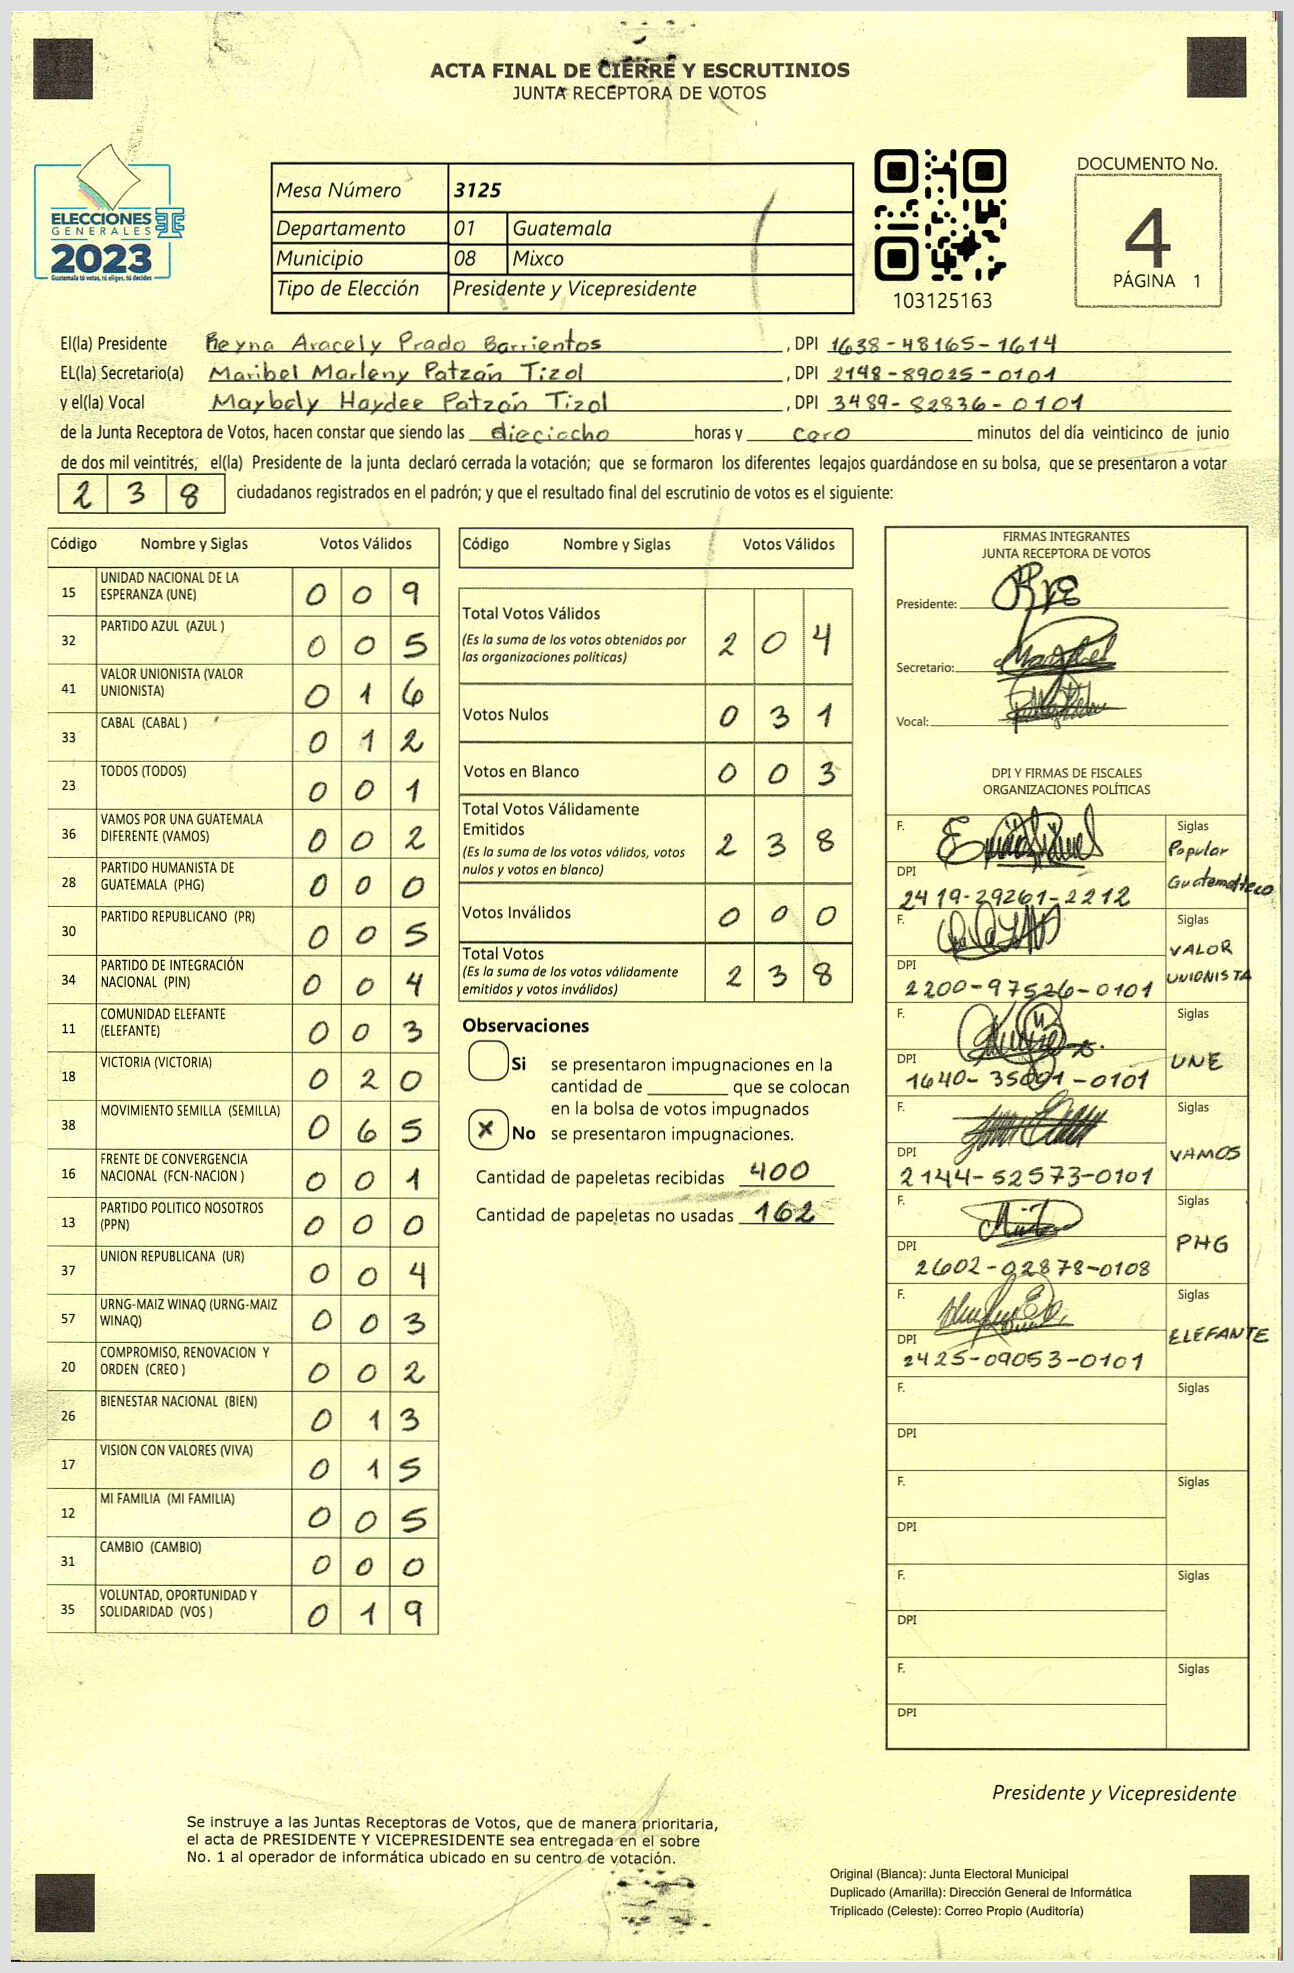 ACTA FINAL DE CIERRE Y ESCRUTINIOS
JUNTA RECEPTORA DE VOTOS
ELECCIONES
GENERALES
2023
Guatemala tú votas, tú eliges, tú decides
Mesa Número 3125
Departamento 01 Guatemala
Municipio 08 Mixco
Tipo de Elección Presidente y Vicepresidente
103125163
DOCUMENTO No.
4
PÁGINA 1
El(la) Presidente Reyna Aracely Prado Barrientos, DPI 1638-48165-1614
EL(la) Secretario(a) Maribel Marleny Patzán Tizol, DPI 2148-89025-0101
y el(la) Vocal Maybely Haydee Patzán Tizol, DPI 3489-82836-0101
de la Junta Receptora de Votos, hacen constar que siendo las dieciocho horas y cero minutos del día veinticinco de junio
de dos mil veintitrés, el(la) Presidente de la junta declaró cerrada la votación; que se formaron los diferentes legajos guardándose en su bolsa, que se presentaron a votar
238 ciudadanos registrados en el padrón; y que el resultado final del escrutinio de votos es el siguiente:
Código Nombre y Siglas Votos Válidos
15 UNIDAD NACIONAL DE LA ESPERANZA (UNE) 009
32 PARTIDO AZUL (AZUL ) 005
41 VALOR UNIONISTA (VALOR UNIONISTA) 016
33 CABAL (CABAL ) 012
23 TODOS (TODOS) 001
36 VAMOS POR UNA GUATEMALA DIFERENTE (VAMOS) 002
28 PARTIDO HUMANISTA DE GUATEMALA (PHG) 000
30 PARTIDO REPUBLICANO (PR) 005
34 PARTIDO DE INTEGRACIÓN NACIONAL (PIN) 004
11 COMUNIDAD ELEFANTE (ELEFANTE) 003
18 VICTORIA (VICTORIA) 020
38 MOVIMIENTO SEMILLA (SEMILLA) 065
16 FRENTE DE CONVERGENCIA NACIONAL (FCN-NACION ) 001
13 PARTIDO POLITICO NOSOTROS (PPN) 000
37 UNION REPUBLICANA (UR) 004
57 URNG-MAIZ WINAQ (URNG-MAIZ WINAQ) 003
20 COMPROMISO, RENOVACION Y ORDEN (CREO ) 002
26 BIENESTAR NACIONAL (BIEN) 013
17 VISION CON VALORES (VIVA) 015
12 MI FAMILIA (MI FAMILIA) 005
31 CAMBIO (CAMBIO) 000
35 VOLUNTAD, OPORTUNIDAD Y SOLIDARIDAD (VOS ) 019
Código Nombre y Siglas Votos Válidos
Total Votos Válidos 204
(Es la suma de los votos obtenidos por
las organizaciones políticas)
Votos Nulos 031
Votos en Blanco 003
Total Votos Válidamente
Emitidos 238
(Es la suma de los votos válidos, votos
nulos y votos en blanco)
Votos Inválidos 000
Total Votos 238
(Es la suma de los votos válidamente
emitidos y votos inválidos)
Observaciones
Si se presentaron impugnaciones en la
cantidad de ________ que se colocan
en la bolsa de votos impugnados
x No se presentaron impugnaciones.
Cantidad de papeletas recibidas 400
Cantidad de papeletas no usadas 162
FIRMAS INTEGRANTES
JUNTA RECEPTORA DE VOTOS
Presidente:
Secretario:
Vocal:
DPI Y FIRMAS DE FISCALES
ORGANIZACIONES POLÍTICAS
F. Siglas
Popular
Guatemalteco
DPI 2419-29261-2212
F. Siglas
VALOR
UNIONISTA
DPI 2200-97526-0101
F. Siglas
UNE
DPI 1640-35091-0101
F. Siglas
VAMOS
DPI 2144-52573-0101
F. Siglas
PHG
DPI 2602-02878-0108
F. Siglas
ELEFANTE
DPI 2425-09053-0101
F. Siglas
DPI
F. Siglas
DPI
F. Siglas
DPI
F. Siglas
DPI
Presidente y Vicepresidente
Se instruye a las Juntas Receptoras de Votos, que de manera prioritaria,
el acta de PRESIDENTE Y VICEPRESIDENTE sea entregada en el sobre
No. 1 al operador de informática ubicado en su centro de votación.
Original (Blanca): Junta Electoral Municipal
Duplicado (Amarilla): Dirección General de Informática
Triplicado (Celeste): Correo Propio (Auditoría)